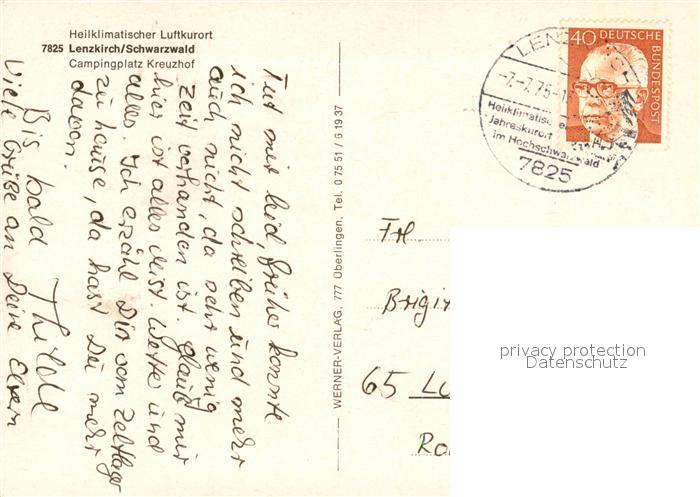 Heilklimatischer Luftkurort
7825 Lenzkirch/Schwarzwald
Campingplatz Kreuzhof
Tut mir leid, früher konnte
ich nicht schreiben und mehr
auch nicht, da sehr wenig
Zeit vorhanden ist. Glaub mir
hier ist alles Mist. Wette und
alles. Ich erzähl Dir vom Zeltlager
zu hause, da hast Du mehr
davon.
Bis bald Thilde
Viele Grüße an Deine Eltern
WERNER-VERLAG, 777 Überlingen, Tel. 0 75 51 / 5 19 37
40 DEUTSCHE
BUNDESPOST
LENZ
-7.-7.75-1
Heilklimatische
Jahreskurort
im Hochschwarzwald
7825
Frl.
Brigi
65
privacy protection
Datenschutz